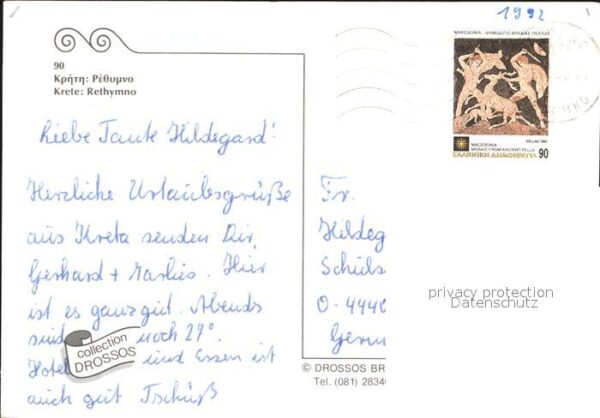 1992
90
Κρήτη: Ρέθυμνο
Krete: Rethymno
ΜΑΚΕΔΟΝΙΑ - ΨΗΦΙΔΩΤΟ ΑΡΧΑΙΑΣ ΠΕΛΛΑΣ
HELLAS 1992
MACEDONIA
MOSAIC FROM ANCIENT PELLA
ΕΛΛΗΝΙΚΗ ΔΗΜΟΚΡΑΤΙΑ 90
Liebe Tante Hildegard!
Herzliche Urlaubsgrüße
aus Kreta senden Dir
Gerhard + Marlies. Hier
ist es ganz gut. Abends
sind noch 27°.
Hotel und Essen ist
auch gut Tschüß
Fr.
Hildeg
Schuls
O-4440
Germ
privacy protection
Datenschutz
collection
DROSSOS
© DROSSOS BR
Tel. (081) 2834